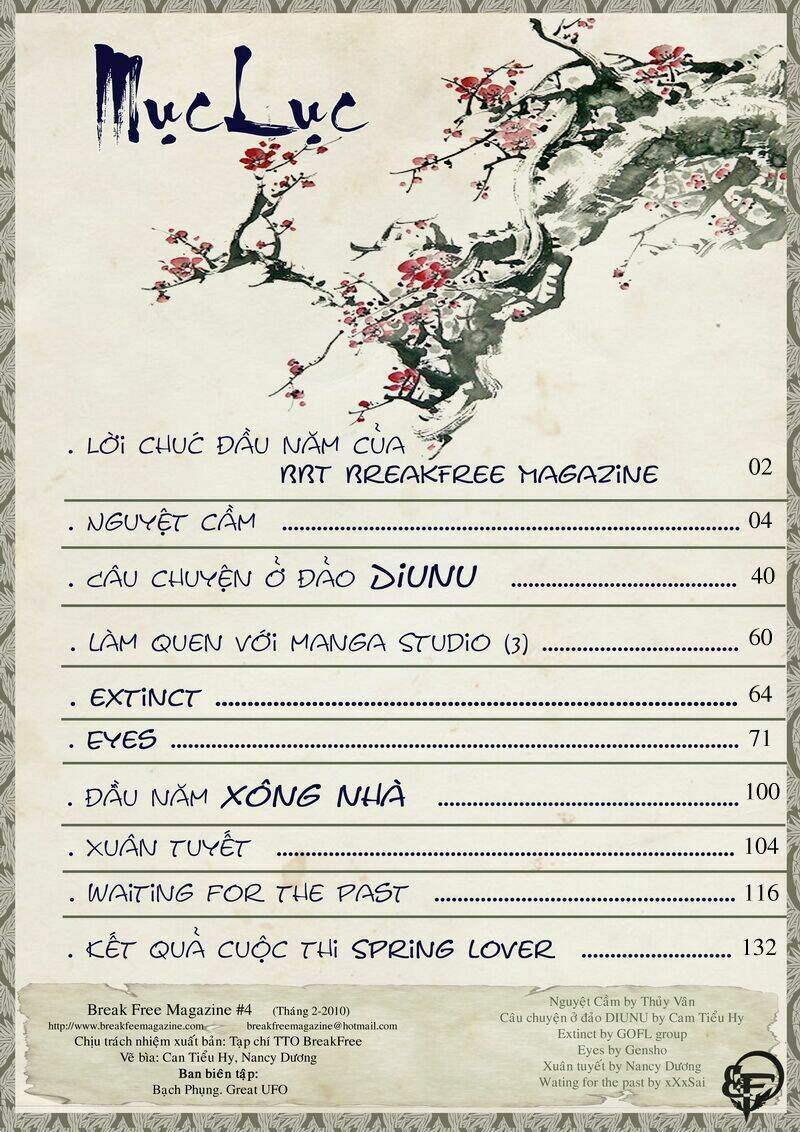 Mục Lục
. LỜI CHÚC ĐẦU NĂM CỦA
BBT BREAKFREE MAGAZINE 02
. NGUYỆT CẦM ........ 04
. CÂU CHUYỆN Ở ĐẢO DIUNU ........ 40
. LÀM QUEN VỚI MANGA STUDIO (3) ........ 60
. EXTINCT ........ 64
. EYES ........ 71
. ĐẦU NĂM XÔNG NHÀ ........ 100
. XUÂN TUYẾT ........ 104
. WAITING FOR THE PAST ........ 116
. KẾT QUẢ CUỘC THI SPRING LOVER ........ 132
Break Free Magazine #4 (Tháng 2-2010)
http://www.breakfeemagazine.com breakfreemagazine@hotmail.com
Chịu trách nhiệm xuất bản: Tạp chí TTO BreakFree
Vẽ bìa: Can Tiểu Hy, Nancy Dương
Ban biên tập:
Bạch Phụng. Great UFO
Nguyệt Cầm by Thủy Vân
Câu chuyện ở đảo DIUNU by Cam Tiểu Hy
Extinct by GOFL group
Eyes by Gensho
Xuân tuyết by Nancy Dương
Wating for the past by xXxSai